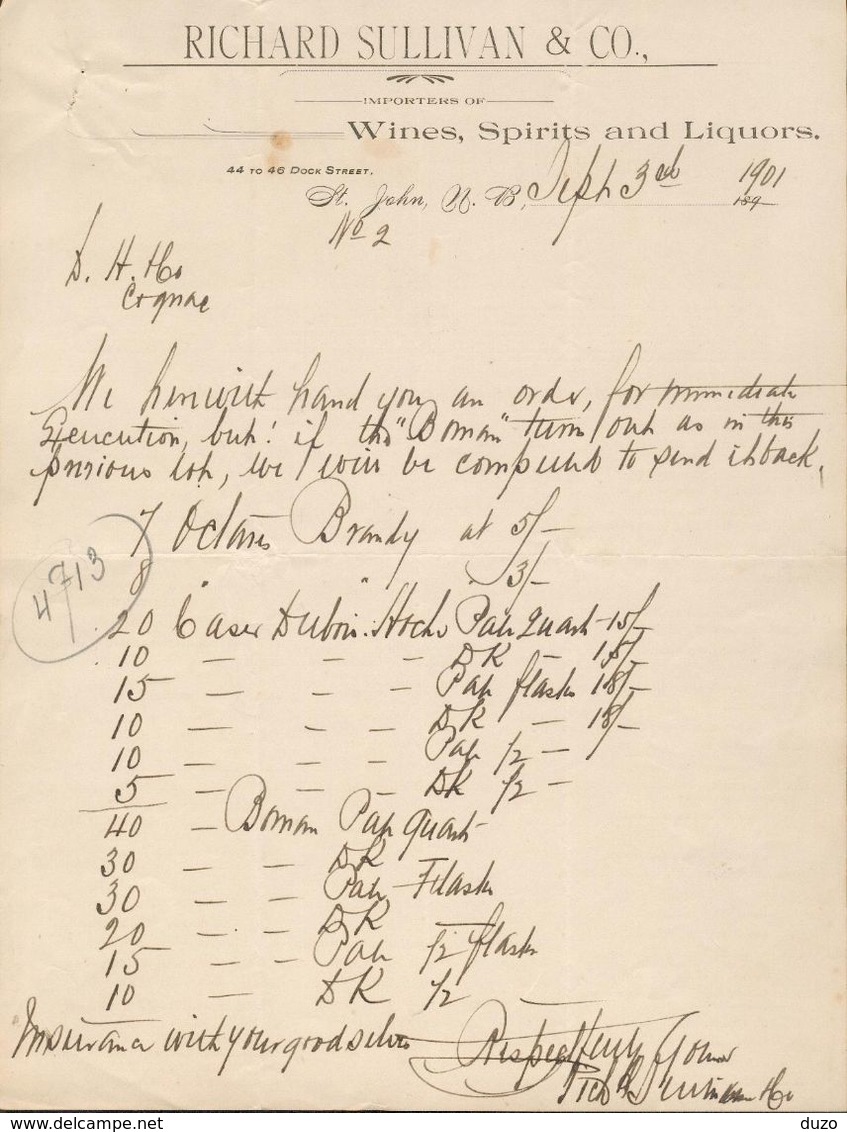 RICHARD SULLIVAN & CO.,
IMPORTERS OF
Wines, Spirits and Liquors.
44 TO 46 DOCK STREET.
St. John, N. B., Sept 3rd 1901
189
No 2
D. H. & Co
Cognac
We herewith hand you an order, for immediate
Execution, but! if the "Boman" turn out as in the
previous lot, we will be compelled to send it back.
7 Octaves Brandy at 5/-
8 " " " 3/-
4713
20 Cases Dubois Pale Quarts 15/-
10 — — — DK — 15/-
15 — — — Pale flasks 18/-
10 — — — DK — 18/-
10 — — — Pale 1/2 —
5 — — — DK 1/2 —
40 — Boman Pale Quarts
30 — — DK
30 — — Pale Flasks
20 — — DK —
15 — — Pale 1/2 flasks
10 — DK 1/2
Insurance with your good selves
Respectfully Yours
Richd Sullivan & Co
duzo
www.delcampe.net